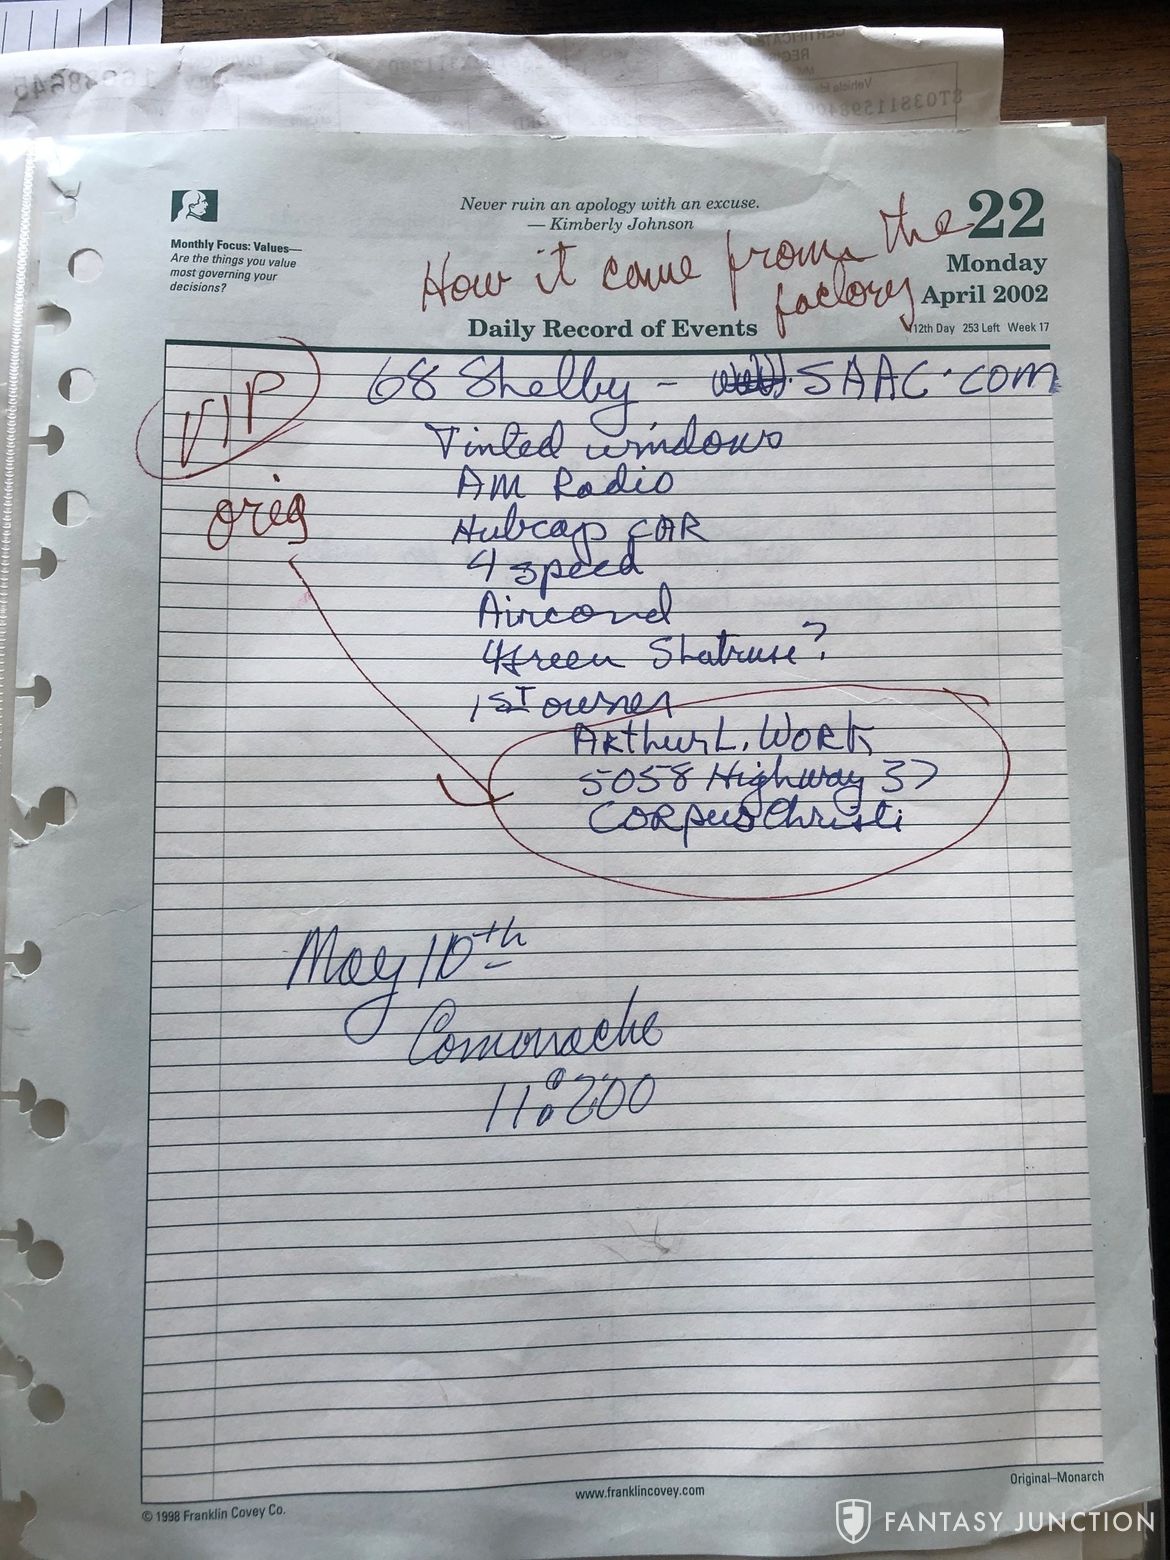 Never ruin an apology with an excuse.
— Kimberly Johnson
22
Monday
April 2002
112th Day 253 Left Week 17
Monthly Focus: Values—
Are the things you value
most governing your
decisions?
How it came from the
factory
Daily Record of Events
VIP
68 Shelby - SAAC.com
Tinted windows
AM Radio
Hubcap CAR
orig
4 speed
Aircond
Green Shatruse?
1ST owner
Arthur L. Work
5058 Highway 37
Corpus Christi
May 10th
Comonache
11:200
Original–Monarch
www.franklincovey.com
© 1998 Franklin Covey Co.
FANTASY JUNCTION